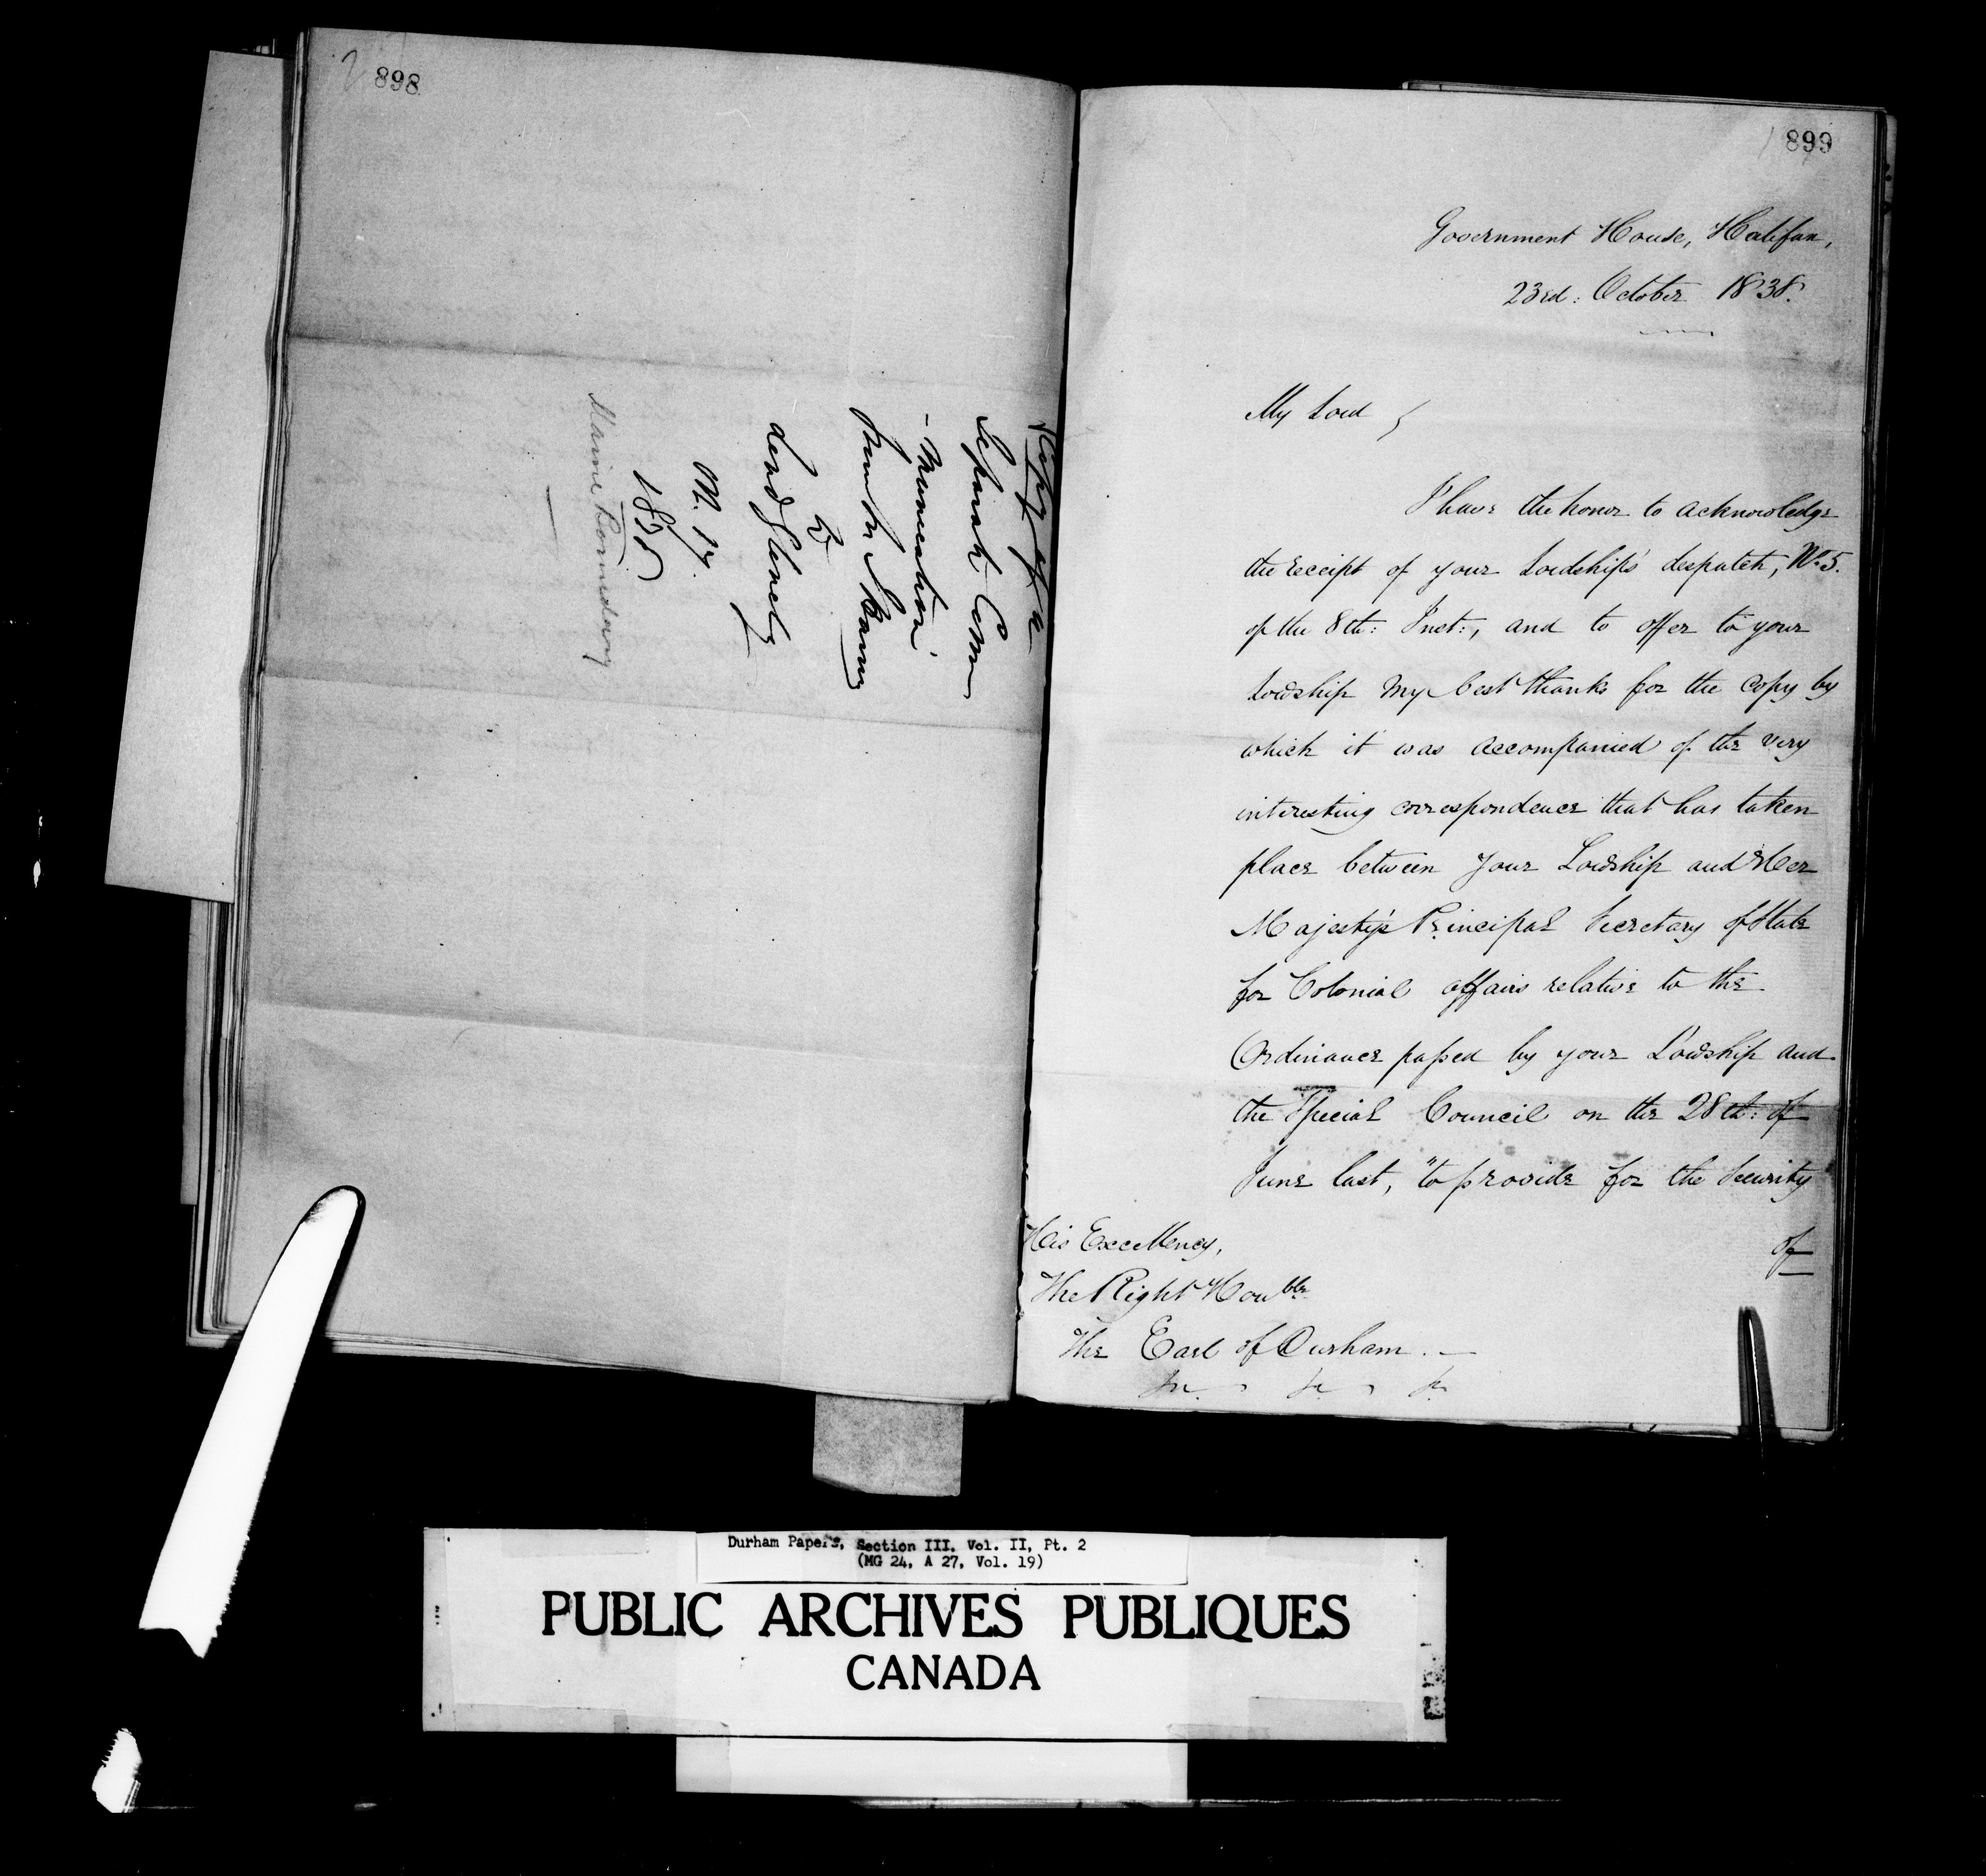 898
Copy of a
Separate Com
-munication
from Sir J. Harvey
to
Lord Glenelg
1838
Maine Boundary
899
Government House, Halifax,
23rd: October 1838.
My Lord,
I have the honor to acknowledge
the receipt of your Lordship's despatch, No. 5.
of the 8th: Inst:, and to offer to your
Lordship my best thanks for the copy by
which it was accompanied of the very
interesting correspondence that has taken
place between Your Lordship and Her
Majesty's Principal Secretary of State
for Colonial affairs relative to the
Ordinance passed by your Lordship and
the Special Council on the 28th: of
June last, "to provide for the Security
of
His Excellency,
The Right Honble
The Earl of Durham. —
Durham Papers, Section III, Vol. II, Pt. 2
(MG 24, A 27, Vol. 19)
PUBLIC ARCHIVES PUBLIQUES
CANADA